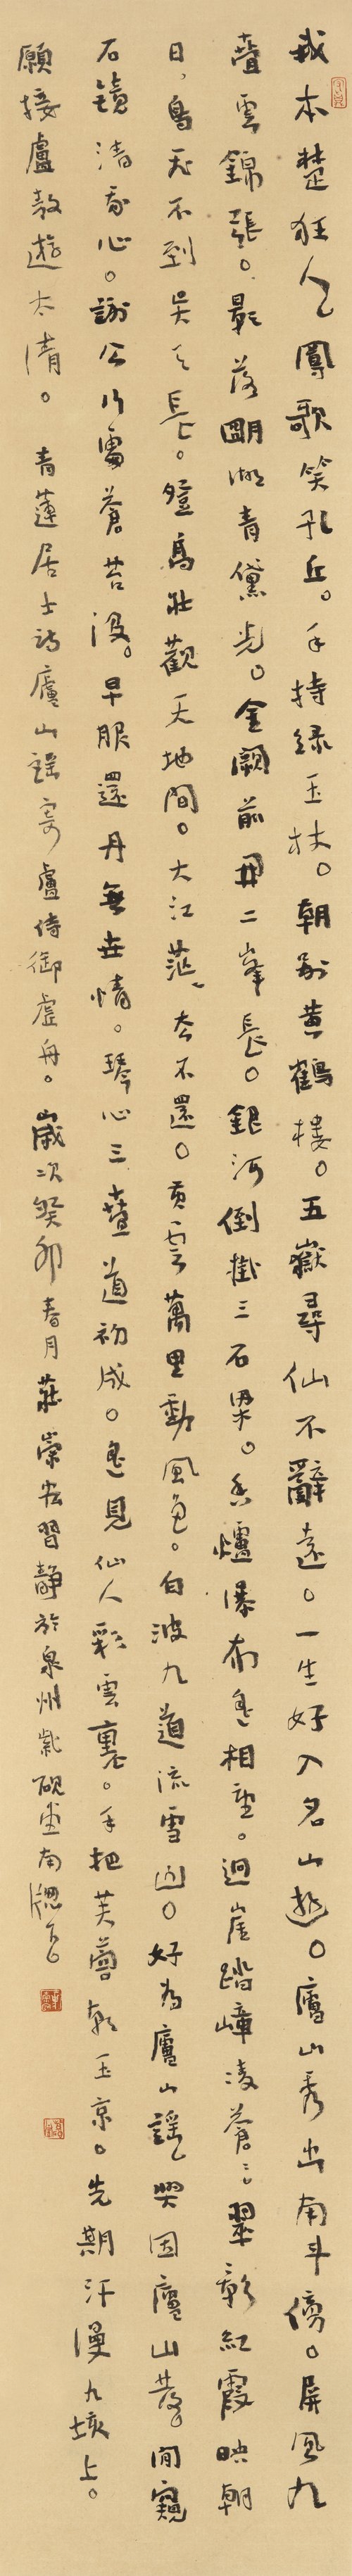 我本楚狂人鳳歌笑孔丘。手持緑玉杖。朝别黄鶴樓。五嶽尋仙不辭遠。一生好入名山遊。廬山秀出南斗傍。屏風九
疊雲錦張。影落明湖青黛光。金闕前開二峯長。銀河倒掛三石梁。香爐瀑布遥相望。迴崖踏嶂凌蒼〻。翠影紅霞映朝
日，鳥飛不到吳天長。登高壯觀天地間。大江茫〻去不還。黄雲萬里動風色。白波九道流雪山。好為廬山謡興因廬山發。閒窺
石鏡清我心。謝公行處蒼苔没。早服還丹無世情。琴心三疊道初成。遥見仙人彩雲裏。手把芙蓉朝玉京。先期汗漫九垓上。
願接盧敖遊太清。青蓮居士詩廬山謡寄盧侍御虚舟。歲次癸卯春月莊崇習静於泉州紫硯堂南牕下